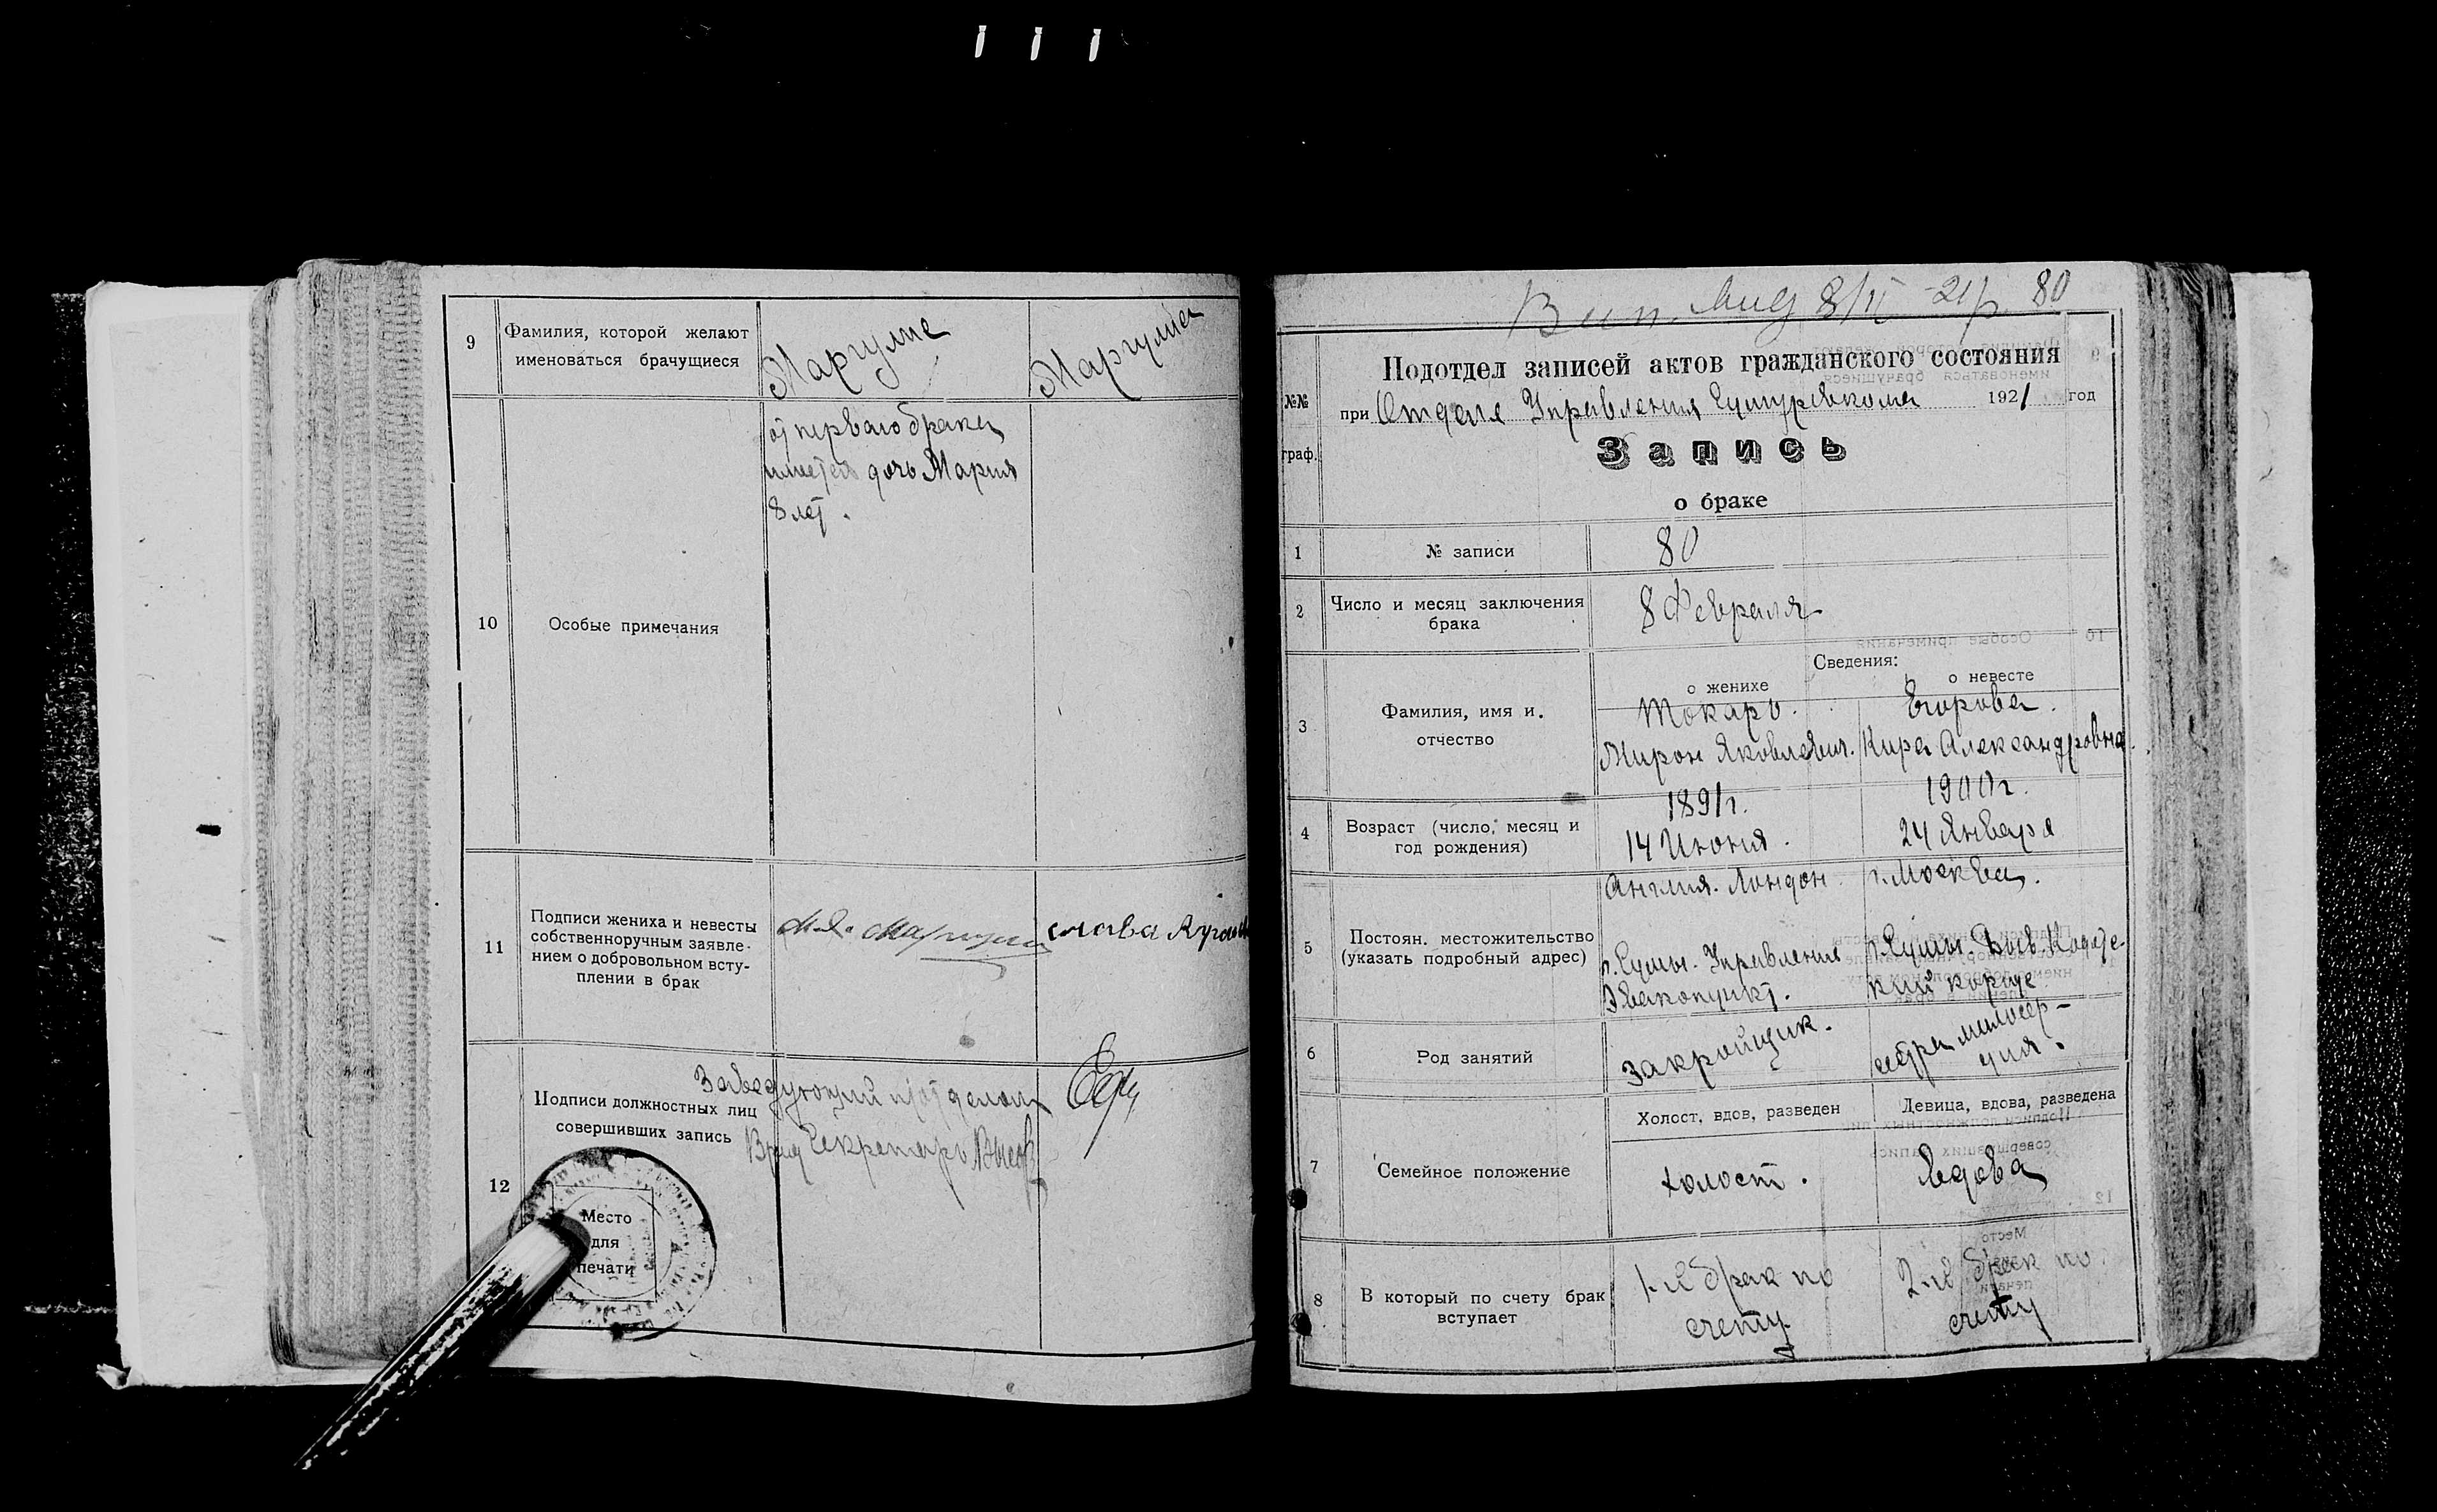 9
Фамилия, которой желают
именоваться брачущиеся
Маргулис
Маргулис
10
Особые примечания
от перваго брака
имеется дочь Мария
8 лет.
11
Подписи жениха и невесты
собственноручным заявле-
нием о добровольном всту-
плении в брак
М. Я.
слава
12
Подписи должностных лиц
совершивших запись
Заведующий п/отделом
Врид Секретаря
Место
для
печати
8/II -21 г. 80
Подотдел записей актов гражданского состояния
№№
граф.
при Отделе Управления Сумуревкома 1921 год
Запись
о браке
1
№ записи
80
2
Число и месяц заключения
брака
8 Февраля
Сведения:
о женихе
о невесте
3
Фамилия, имя и.
отчество
Токарь.
Мирон Яковлевич.
Егорова.
Кира Александровна.
4
Возраст (число, месяц и
год рождения)
1891 г.
14 Июня.
1900 г.
24 Января
5
Постоян. местожительство
(указать подробный адрес)
Англия. Лондон.
г. Сумы. Управление
Эвакопункт.
г. Москва.
г. Сумы. Быв. Кадетс-
кий корпус
6
Род занятий
Закройщик.
сестра милосер-
дия.
7
Семейное положение
Холост, вдов, разведен
Девица, вдова, разведена
холост.
вдова
8
В который по счету брак
вступает
1-й брак по
счету
2-й брак по
счету